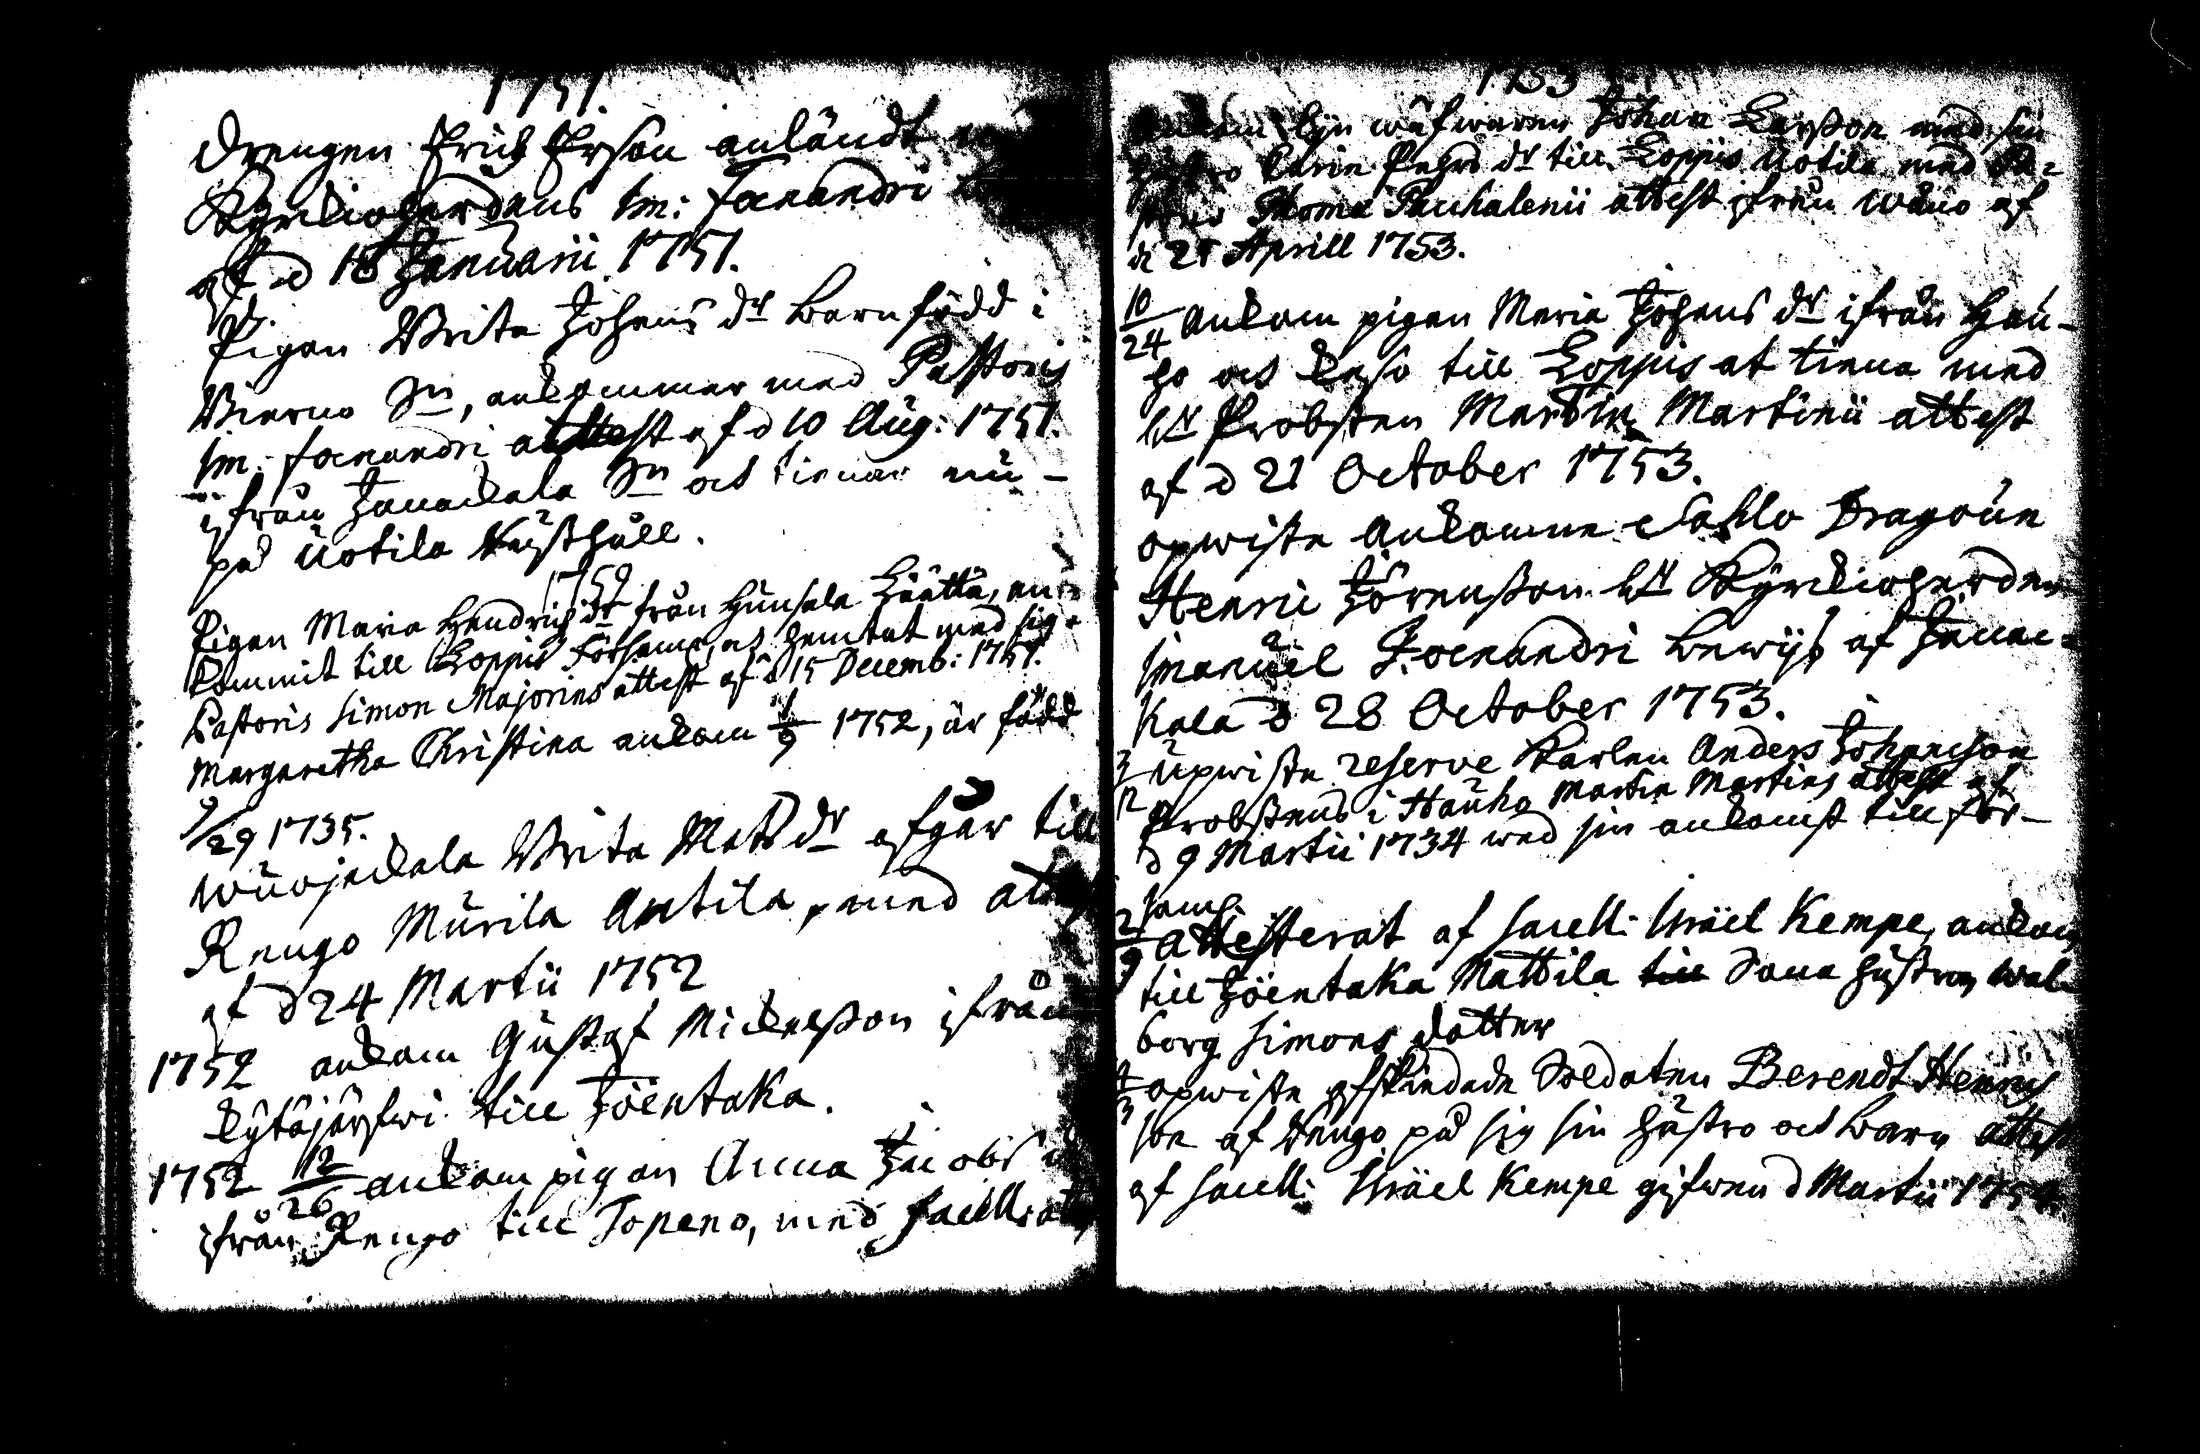 1751.
Drengen Erich Ersson anländt
Kyrckioherdens Im: Foenandri
af d 18 Januarii 1751.
Pigan Brita Johans dr barnfödd i
Vierno Sn, ankommer med Pastoris
Im: Foenandri attest af d 10 Aug: 1751.
ifrån Janackala Sn och tienar nu
på Uotila Rusthåll.
1752
Pigan Maria Hendrichs dr från Hunsala Häättä, an-
kommit till Loppis Församl. och hemtat med sig
Pastoris Simon Majorins attest af d 15 Decemb: 1751.
Margaretha Christina ankom 1/9 1752, är född
9/29 1735.
Wuojackala Brita Mats dr afgår till
Rengo Murila Antila, med
af d 24 Martii 1752
1752 ankom Gustaf Mickelsson ifrån
Kytäjärfwi till Jöentaka.
1752 12/26 ankom pigan Anna Jacobs
ifrån Rengo till Topeno, med Sacell:
1753
Ankom Johan Larsson med sin
hustro Carin Pehrs dr till Loppis Uotila med Pa-
storis Thomæ Pacchalenii attest ifrån Wåno af
d 21 Aprill 1753.
10/24 Ankom pigan Maria Johans dr ifrån Hau-
ho och till Loppis at tiena med
hr Probsten Martin Martinii attest
af d 21 October 1753.
opwiste Ankomne Dragoun
Henric Jörensson hr Kyrckioherden
Imanuel Foenandri bewijs af Janac-
kala d 28 October 1753.
3/12 Upwiste reserve Karlen Anders Johansson
Probstens i Hauho Martin Martins attest af
d 9 Martii 1734 wed sin ankomst till för-
saml.
2/9 Attesterat af Sacell: Israel Kempe, ankom
till Jöentaka Mattila till Sona hustron Wal-
borg Simons dotter
4/3 opwiste afskiedade Soldaten Berendt Henrics
son af Rengo på sig sin hustro och barn attest
af Sacell: Israel Kempe gifwen d Martii 1754.